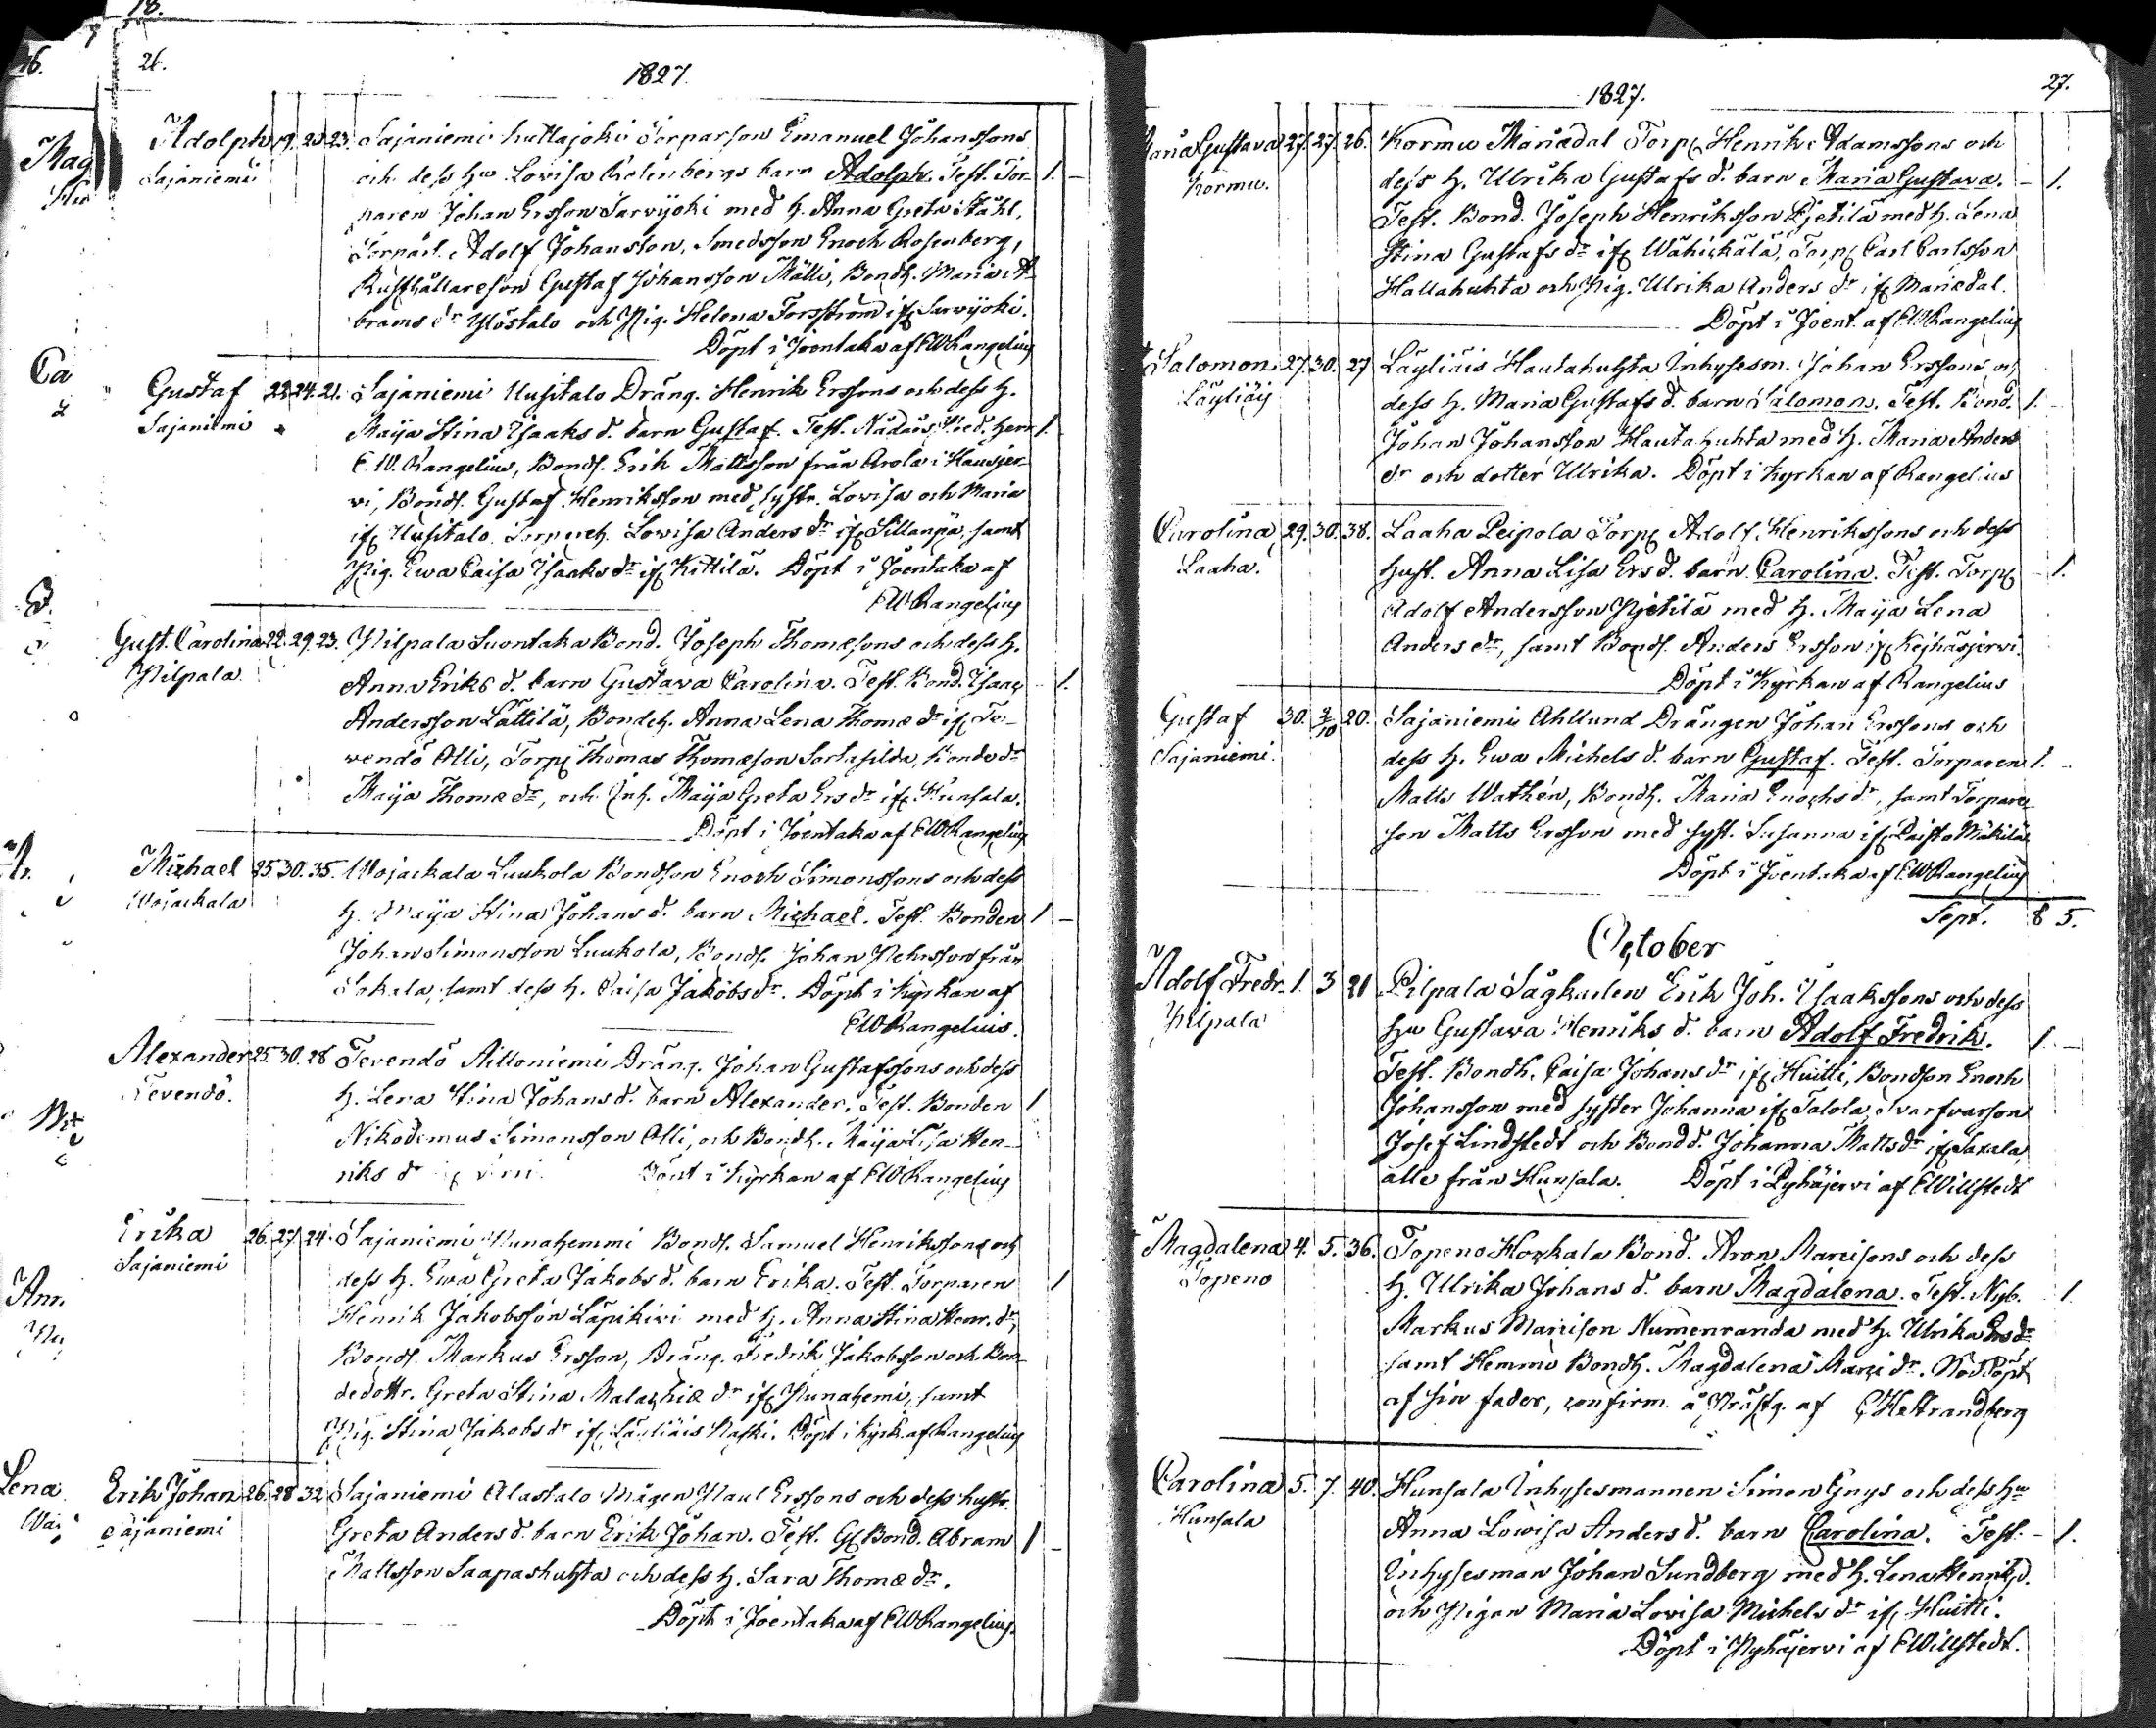 18.
26.
1827.
Adolph 19. 23. 23. Sajaniemi huttajoki Torparson Emanuel Johanssons
Sajaniemi och dess hu Lovisa barn Adolph. Test. Tor- 1. -
paren Johan Ersson Sarvijoki med h. Anna Greta Ståhl,
Adolf Johansson, Smedsson Enoch Rosenberg,
Rusthållareson Gustaf Johansson Mälli, Bondh. Maria A-
brams dr Ylöstalo och Pig. Helena Forsström if Sarvijoki.
Döpt i Joentaka af EWRangelius
Gustaf 22. 24. 21. Sajaniemi Uusitalo Dräng. Henrik Erssons och dess h.
Sajaniemi Maija Stina Isaaks d. barn Gustaf. Test. Nådårs Pred. Herr 1.
E. W. Rangelius, Bonds. Erik Mattsson från Arola i Hausjer-
vi, Bonds. Gustaf Henriksson med systr. Lovisa och Maria
if Uusitalo. Lovisa Anders dr if Sillanpä, samt
Pig. Ewa Caisa Isaaks dr if Kittilä. Döpt i Joentaka af
EWRangelius
Gust. Carolina 22. 29. 23. Pilpala Suontaka Bond. Joseph Thomæsons och dess h.
Pilpala Anna Eriks d. barn Gustava Carolina. Test. Bond. Isaac - 1.
Andersson Lättilä, Bondeh. Anna Lena Thomæ dr if Te-
vendö Olli, Torp Thomas Thomæson Sortasilda, Bonde dr
Maija Thomæ dr, och Inh. Maija Greta Ers dr if Hunsala.
Döpt i Joentaka af EWRangelius
Michael 25. 30. 35. Wojackala Luukola Bondson Enoch Simonssons och dess
Wojackala h. Maija Stina Johans d. barn Michael. Test. Bonden 1 -
Johan Simonsson Luukola, Bonds. Johan från
Sokala, samt dess h. Caisa Jakobs dr. Döpt i Kyrkan af
EWRangelius.
Alexander 25. 30. 28 Tevendö Dräng. Johan Gustafssons och dess
Tevendö. h. Lena Stina Johans d. barn Alexander. Test. Bonden 1
Nikodemus Simonsson Olli, och Bondh. Maija Lisa Hen-
riks dr Döpt i Kyrkan af EWRangelius
Erika 26. 27. 24. Sajaniemi Nunahemmi Bonds. Samuel Henrikssons och
Sajaniemi dess h. Ewa Greta Jakobs d. barn Erika. Test. Torparen 1
Henrik Jakobsson Läpikivi med h. Anna Stina Henr. dr,
Bonds. Markus Ersson, Dräng. Fredrik Jakobsson och Bon-
dedottr. Greta Stina Malachiæ dr if Nunahemi, samt
Pig. Stina Jakobs dr if Läyliäis Naski. Döpt i Kyrk. af Rangelius
Erik Johan 26. 28 32 Sajaniemi Alastalo Mågen Paul Erssons och dess hustr.
Sajaniemi Greta Anders d. barn Erik Johan. Test. Bond. Abram 1 -
Mattsson Saapashuhta och dess h. Sara Thomæ dr.
Döpt i Joentaka af EWRangelius.
27.
1827.
Maria Gustava 27. 27. 26. Kormu Mariædal Torp Henrik Adamssons och
Kormu. dess h. Ulrika Gustafs d. barn Maria Gustava. - 1.
Test. Bond. Joseph Henriksson Pietilä med h. Lena
Stina Gustafs dr if Wähickälä, Torp Carl Carlsson
Hallahuhta och Pig. Ulrika Anders dr if Mariædal.
Döpt i Joent. af EWRangelius
Salomon 27. 30. 27 Läyliäis Hautahuhta Inhysesm. Johan Erssons och
Läyliäis dess h. Maria Gustafs d. barn Salomon. Test. Bond. 1. -
Johan Johansson Hautahuhta med h. Maria Anders
dr och dotter Ulrika. Döpt i Kyrkan af Rangelius
Carolina 29. 30. 38. Laaha Peipola Torp Adolf Henrikssons och dess
Laaha. Hust. Anna Lisa Ers d. barn Carolina. Test. Torp - 1.
Adolf Andersson Pietilä med h. Maija Lena
Anders dr, samt Bonds. Anders Ersson if Keihäsjervi.
Döpt i Kyrkan af Rangelius
Gustaf 30. 2/10 20. Sajaniemi Ahllund Drängen Johan Erssons och
Sajaniemi. dess h. Ewa Michels d. barn Gustaf. Test. Torparen 1. -
Matts Wathén, Bondh. Maria Enochs dr, samt Torpare
son Matts Ersson med syst. Susanna if Mäkilä
Döpt i Joentaka af EWRangelius
Sept. 8 5.
October
Adolf Fredr. 1. 3 21 Pilpala Sågkarlen Erik Joh. Isaakssons och dess
Pilpala hu Gustava Henriks d. barn Adolf Fredrik. 1. -
Test. Bondh. Caisa Johans dr if Huitti, Bondson Enoch
Johansson med syster Johanna if Talola, Svarfvarson
Josef Lindstedt och Bond d. Johanna Matts dr if Saxala,
alle från Hunsala. Döpt i Pyhäjervi af EWillstedt
Magdalena 4. 5. 36. Topeno Horkala Bond. Aron Marcisons och dess
Topeno h. Ulrika Johans d. barn Magdalena. Test. Nyb. - 1.
Markus Marcison Numenranda med h. Ulrika Ers dr
samt Hemmi Bondh. Magdalena Marci dr. Nöddöpt
af sin fader, confirm. å Prästg. af CHStrandberg
Carolina 5. 7. 40. Hunsala Inhysesmannen Simon Gnys och dess hu
Hunsala Anna Lovisa Anders d. barn Carolina. Test. - 1.
Inhysesman Johan Sundberg med h. Lena Henriksd.
och Pigan Maria Lovisa Michels dr if Huitti.
Döpt i Pyhäjervi af EWillstedt.